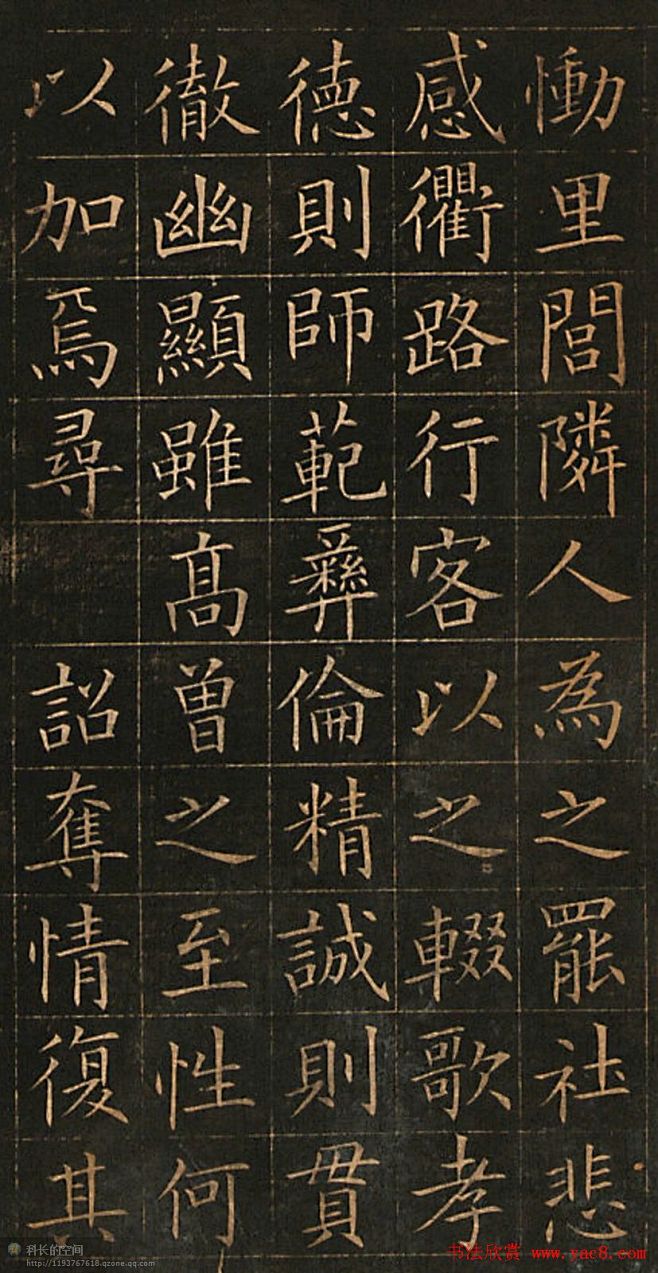 慟里閭隣人為之罷社悲
感衢路行客以之輟歌孝
德則師範彝倫精誠則貫
徹幽顯雖高曾之至性何
以加焉尋 詔奪情復其
科长的空间
http://1193767618.qzone.qq.com
书法欣赏 www.yac8.com